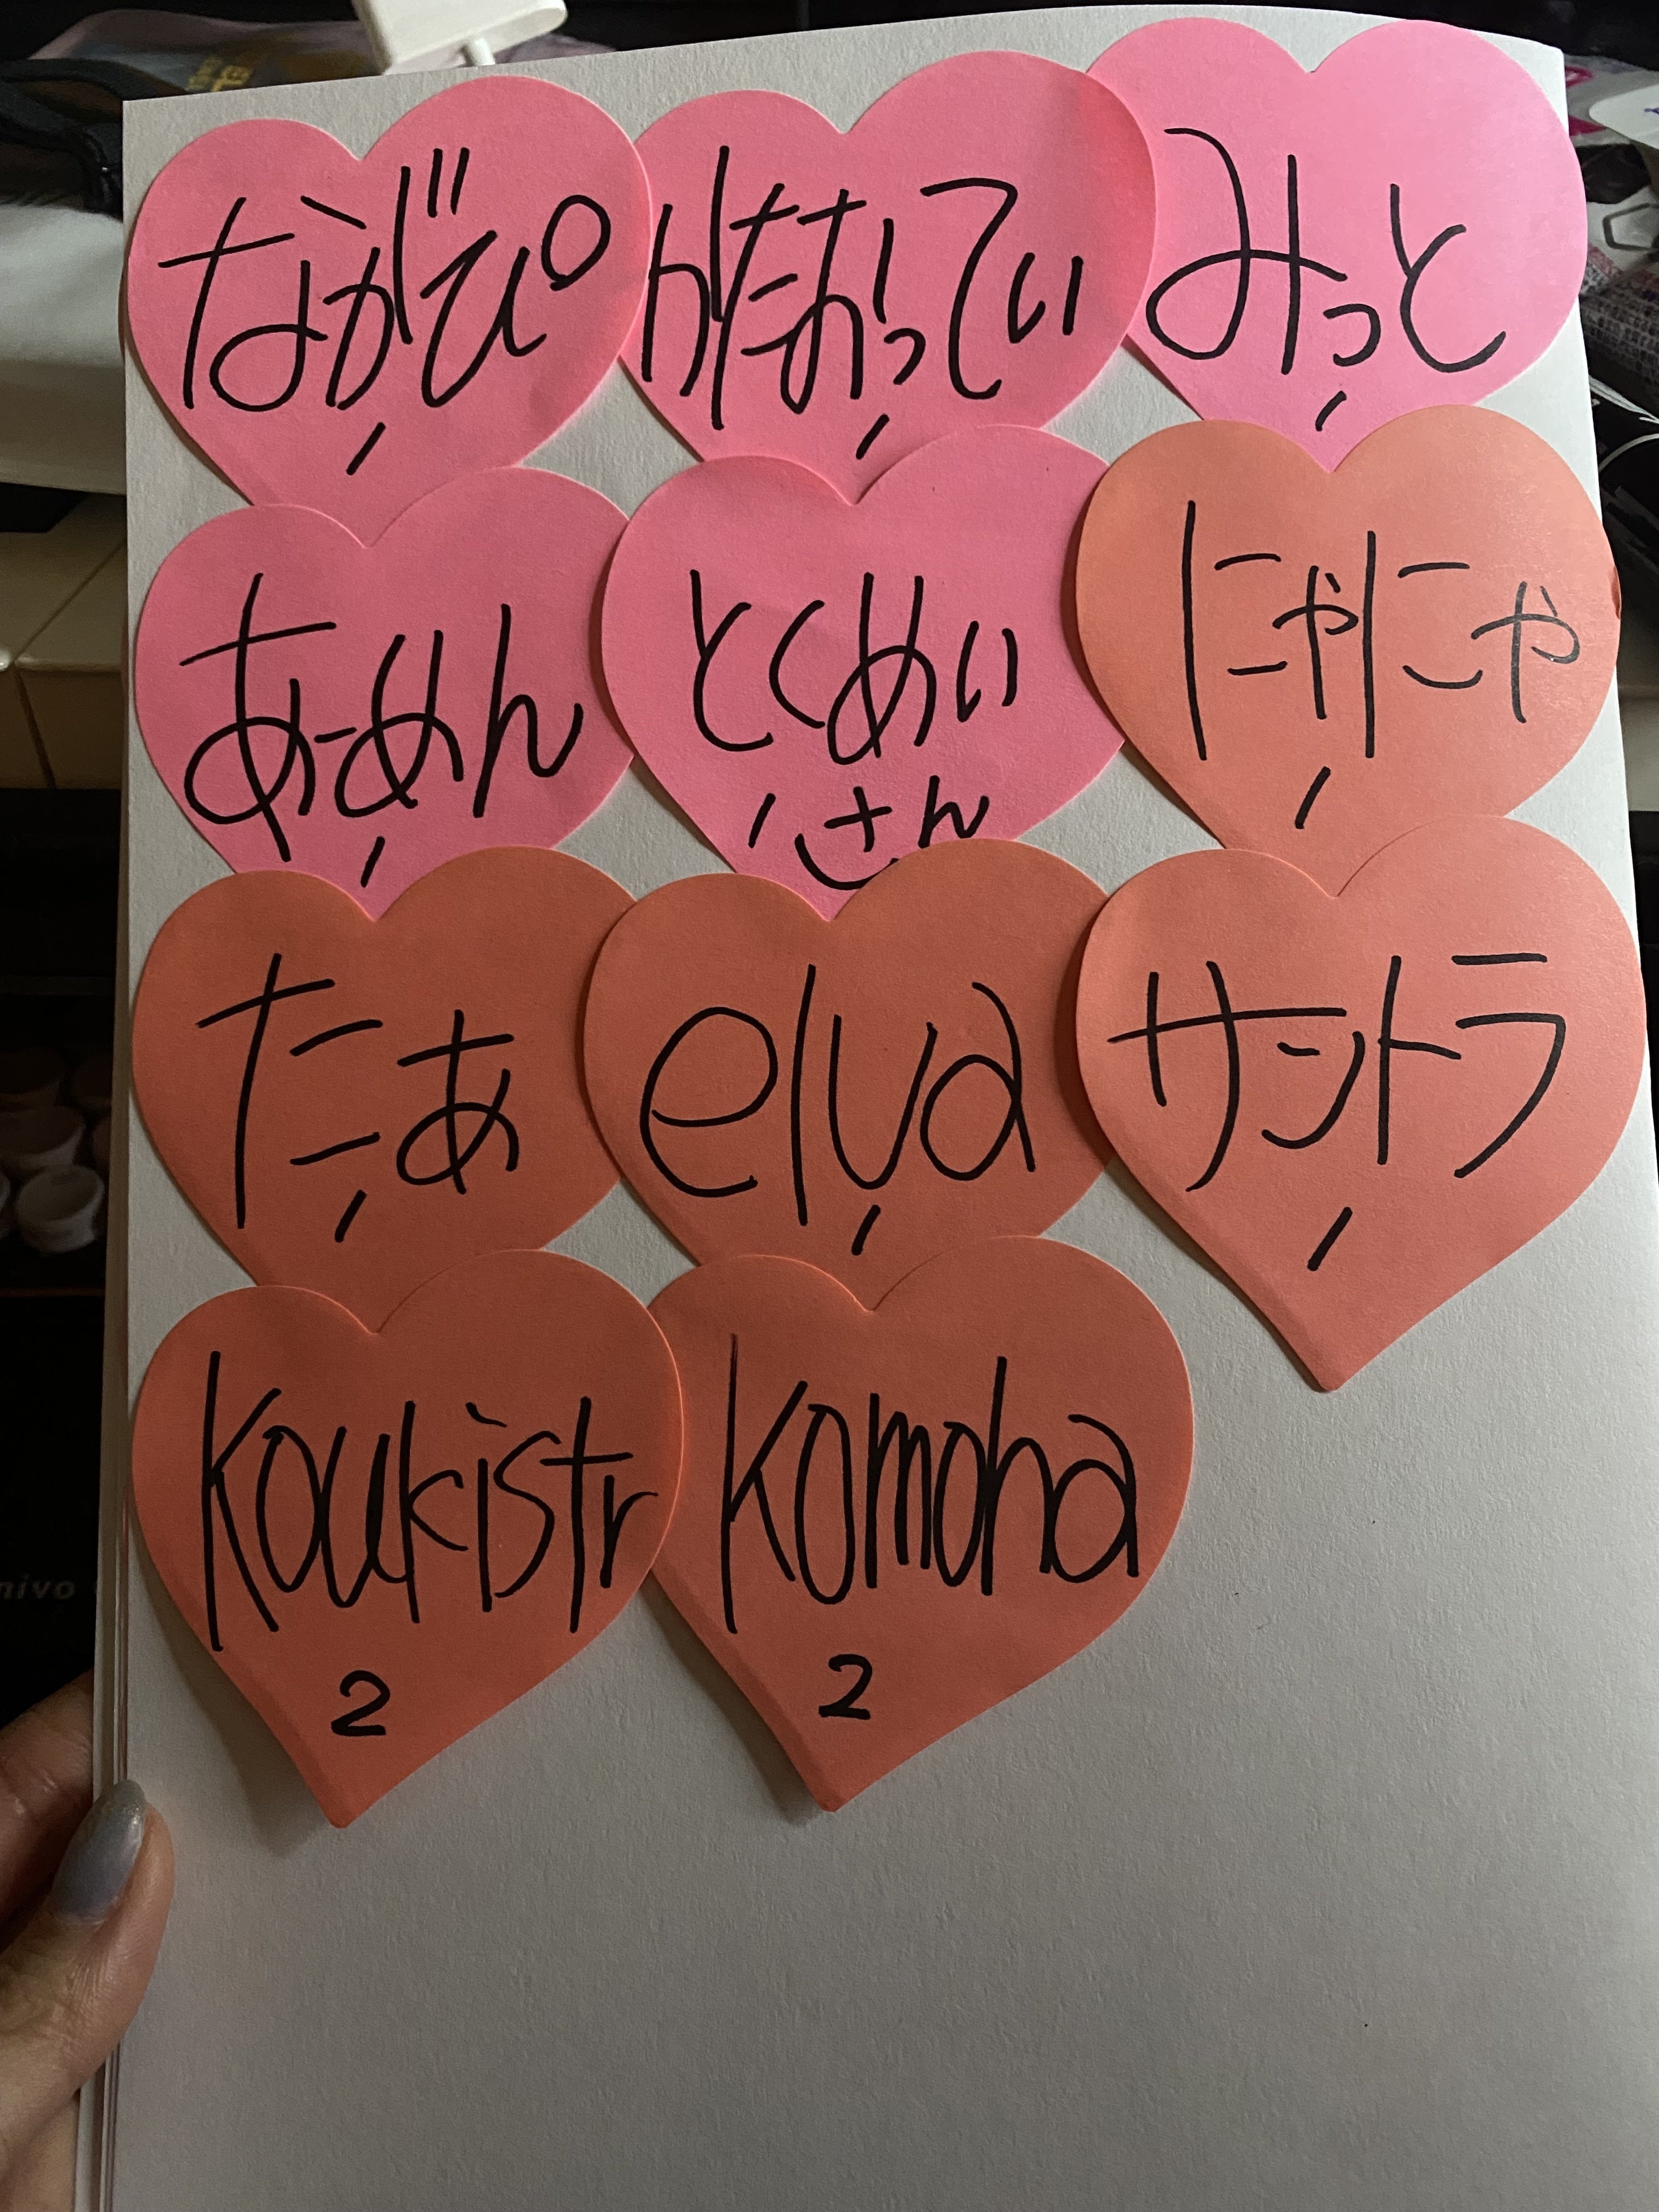 ながぴ
かたおってぃ
みっと
あーめん
とくめい
さん
にゃにゃ
たぁ
elva
サントラ
Koukistr
2
Komoha
2
nivo